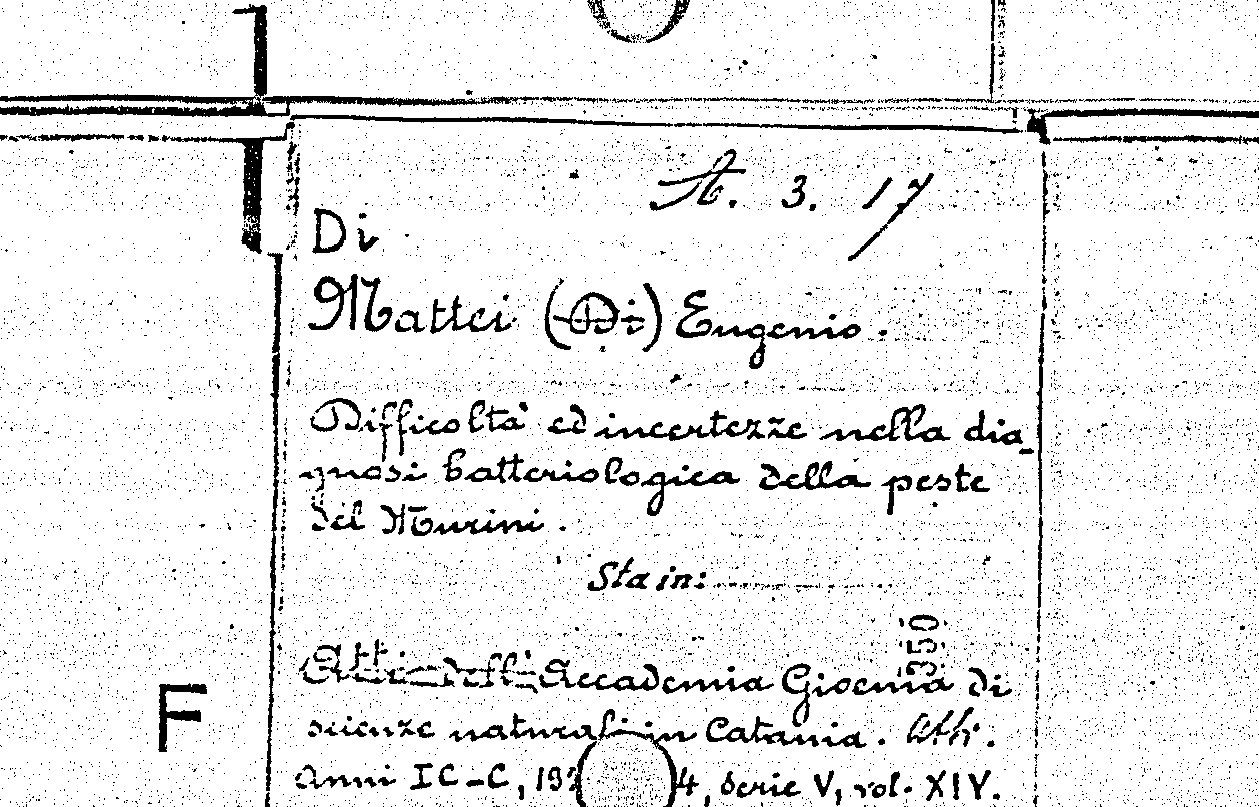 A. 3. 17
Di
Mattei (Di) Eugenio.
Difficoltà ed incertezze nella dia-
gnosi batteriologica della peste
del Murini.
Sta in:
350
Atti dell' Accademia Gioenia di
scienze naturali in Catania. Atti.
Anni IC-C, 192 4, serie V, vol. XIV.
F